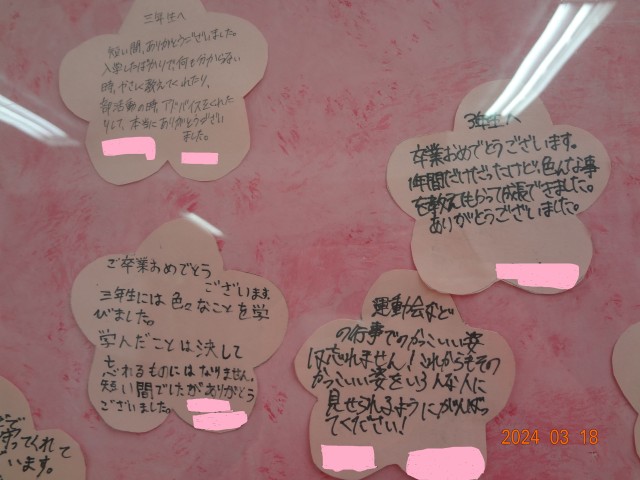 三年生へ
短い間、ありがとうございました。
入学したばかりで、何も分からない
時、やさしく教えてくれたり、
部活動の時、アドバイスをくれた
りして、本当にありがとうござい
ました。
3年生へ
卒業おめでとうございます。
1年間だけだったけど、色んな事
を教えてもらって成長できました。
ありがとうございました。
ご卒業おめでとう
ございます
三年生には色々なことを学
びました。
学んだことは決して
忘れるものにはなりません。
短い間でしたがありがとう
ございました。
運動会など
の行事でのかっこいい姿
は忘れません！これからもその
かっこいい姿をいろんな人に
見せられるようにがんばっ
てください！
てくれて
います。
2024 03 18